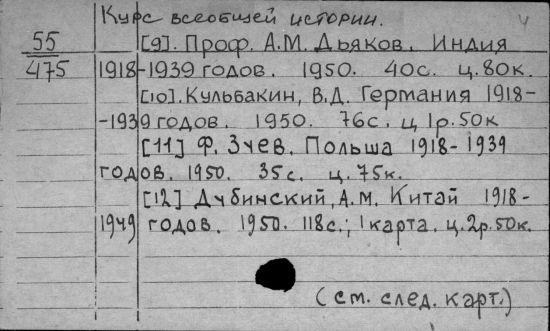 Курс всеобщей истории. 4
55 [9]. Проф. А.М. Дьяков. Индия
475 1918-1939 годов. 1950. 40с. ц. 80к.
[10]. Кульбакин, В.Д. Германия 1918-
-1939 годов. 1950. 76с. ц 1р.50к
[11] Ф. Зуев. Польша 1918-1939
годов. 1950. 35с. ц. 75к.
[12] Дубинский, А.М. Китай 1918-
1949 годов. 1950. 118с.; 1 карта. ц.2р.50к.
(см. след. карт.)